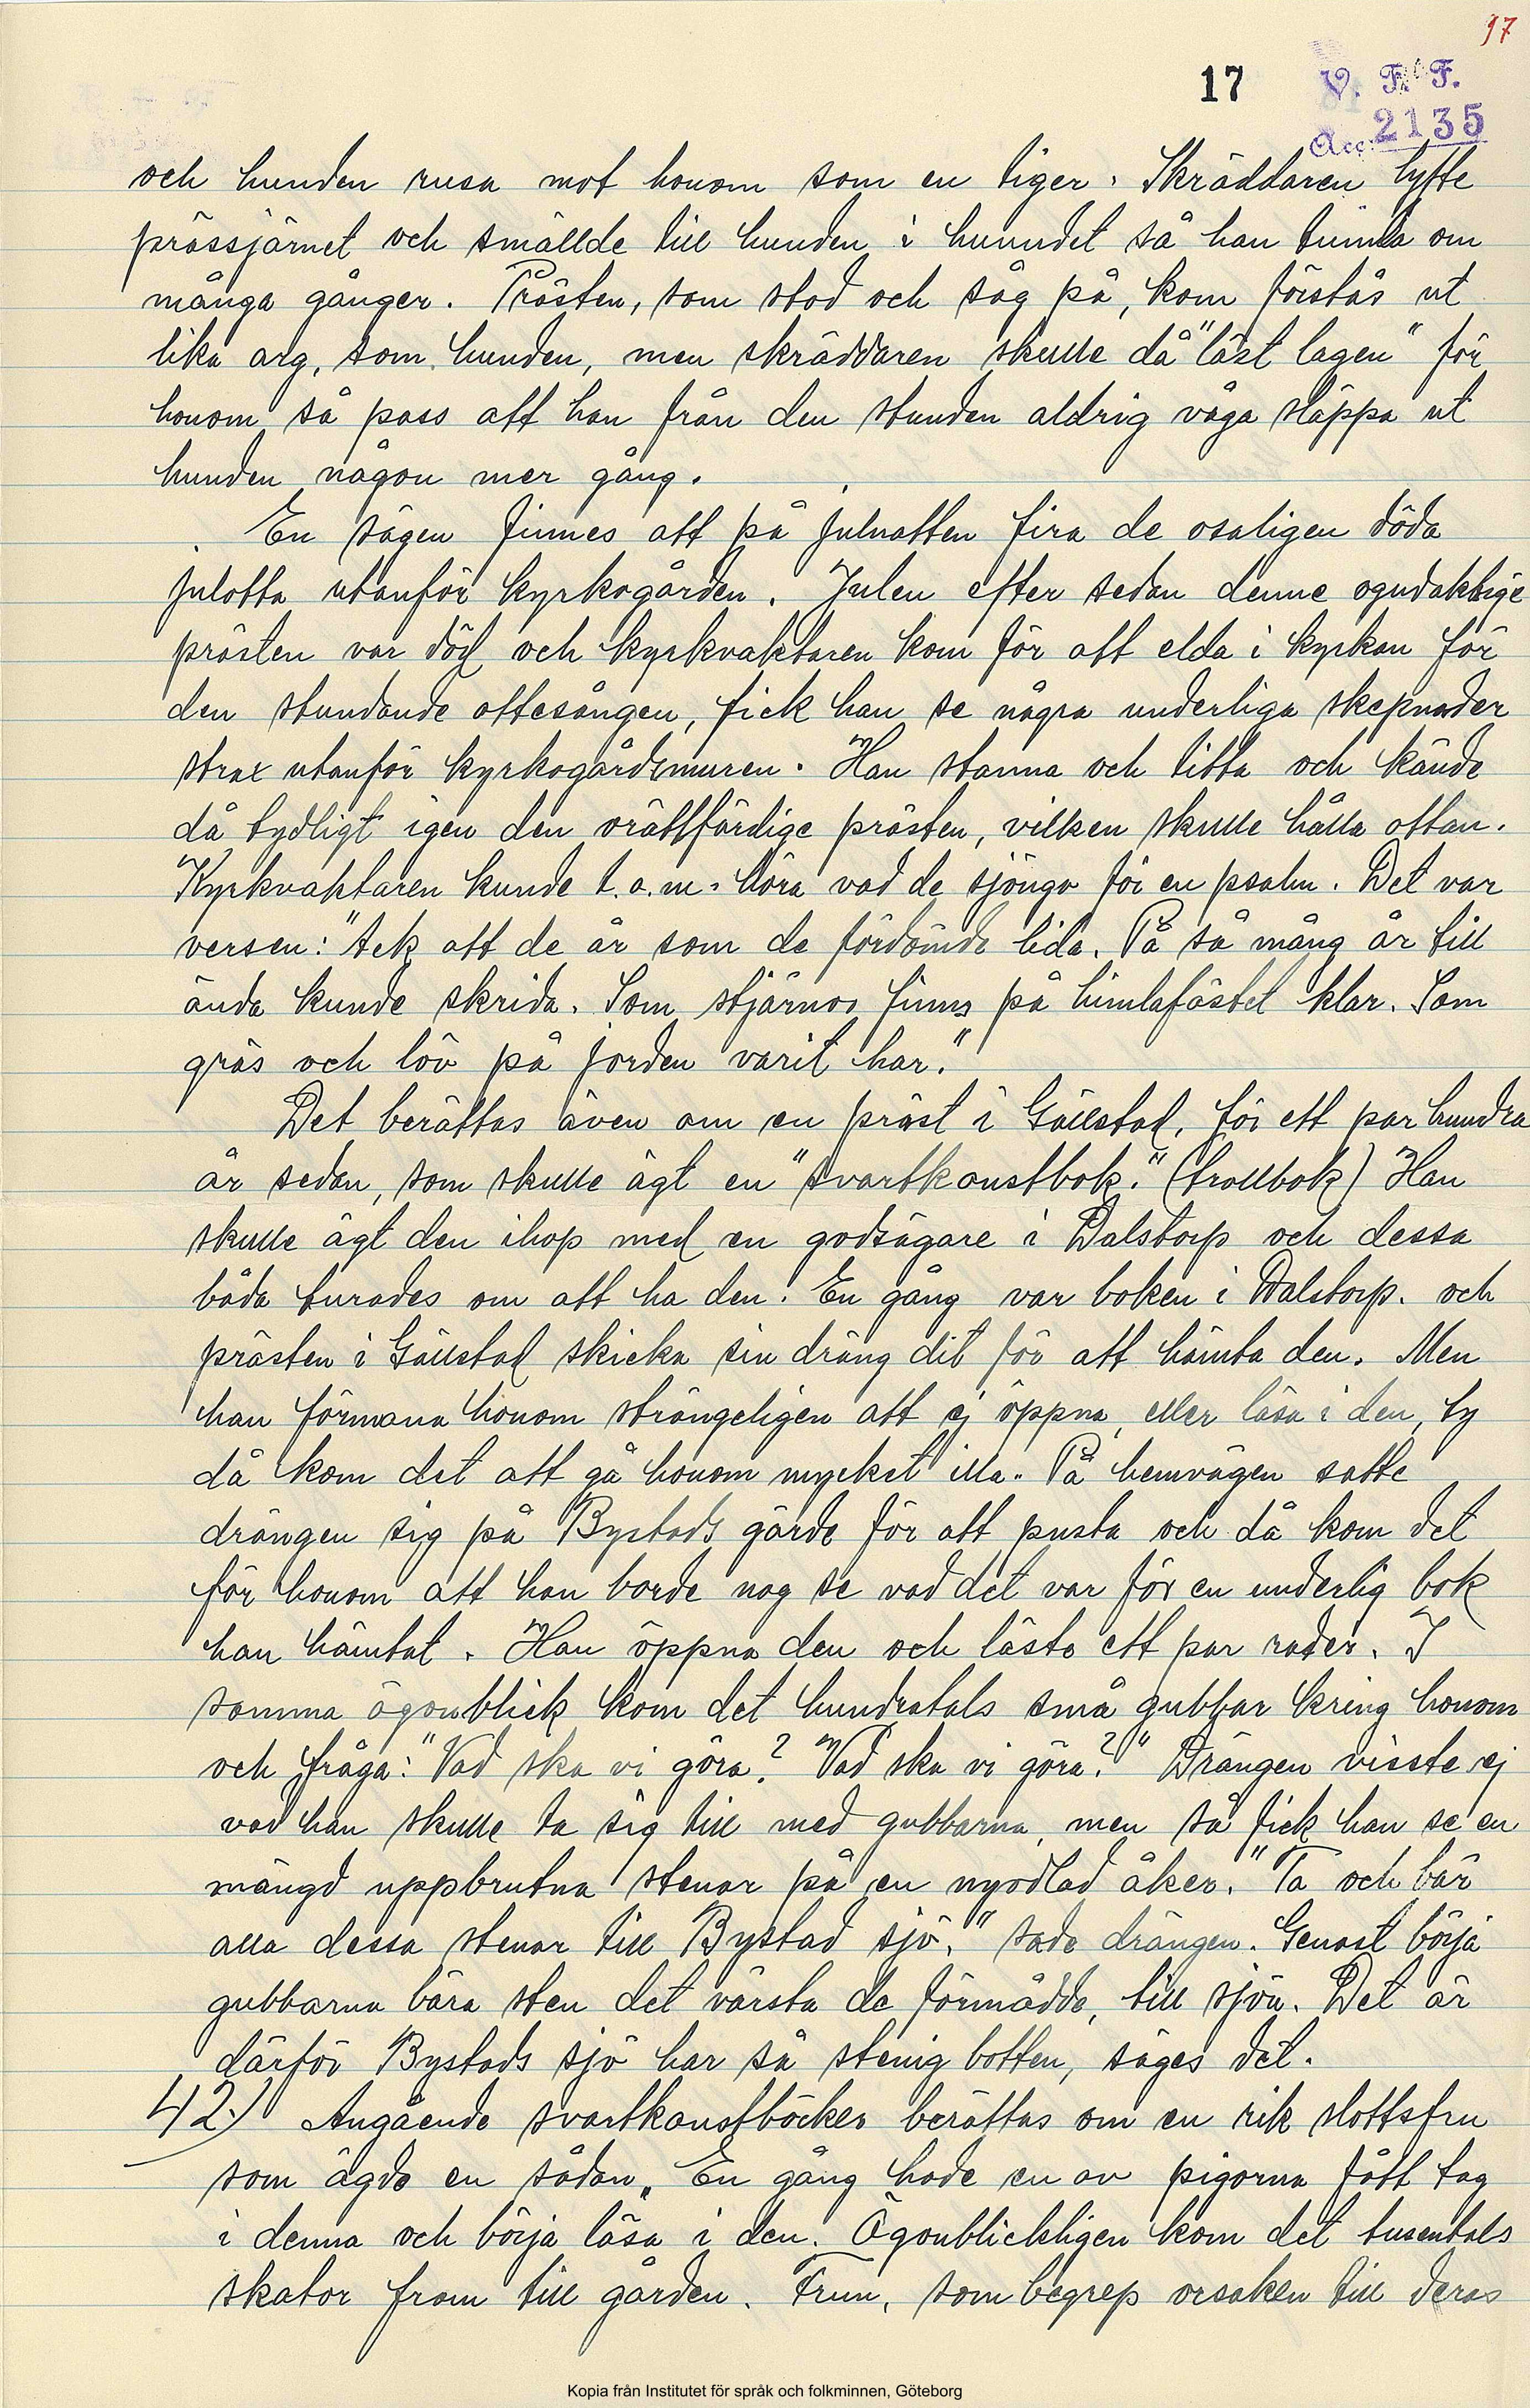 17
17 V. F. F.
Acc. 2135
och hunden rusa mot honom som en tiger. Skräddaren lyfte
prässjärnet och smällde till hunden i huvudet så han tumla om
många gånger. Prästen, som stod och såg på, kom förstås ut
lika arg, som hunden, men skräddaren skulle då "läst lagen" för
honom så pass att han från den stunden aldrig våga släppa ut
hunden någon mer gång.
En sägen finnes att på julnatten fira de osaligen döda
julotta utanför kyrkogården. Julen efter sedan denne ogudaktige
prästen var död och kyrkvaktaren kom för att elda i kyrkan för
den stundande ottesången, fick han se några underliga skepnader
strax utanför kyrkogårdsmuren. Han stanna och titta och kände
då tydligt igen den orättfärdige prästen, vilken skulle hålla ottan.
Kyrkvaktaren kunde t.o.m. höra vad de sjöngo för en psalm. Det var
versen: "Ack att de år som de fördömda lida. På så mång år till
ända kunde skrida. Som stjärnor finns på himlafästet klar. Som
gräs och löv på jorden varit har."
Det berättas även om en präst i Gällstad, för ett par hundra
år sedan, som skulle ägt en "svartkonstbok." (trollbok) Han
skulle ägt den ihop med en godsägare i Dalstorp och dessa
båda turades om att ha den. En gång var boken i Dalstorp. och
prästen i Gällstad skicka sin dräng dit för att hämta den. Men
han förmana honom strängeligen att ej öppna, eller läsa i den, ty
då kom det att gå honom mycket illa. På hemvägen satte
drängen sig på Bystads gärde för att pusta och då kom det
för honom att han borde nog se vad det var för en underlig bok
han hämtat. Han öppna den och läste ett par rader. I
samma ögonblick kom det hundratals små gubbar kring honom
och fråga: "Vad ska vi göra? Vad ska vi göra?" Drängen visste ej
vad han skulle ta sig till med gubbarna, men så fick han se en
mängd uppbrutna stenar på en nyodlad åker. "Ta och bär
alla dessa stenar till Bystad sjö," sade drängen. Genast börja
gubbarna bära sten det värsta de förmådde, till sjön. Det är
därför Bystads sjö har så stenig botten, säges det.
42.) Angående svartkonstböcker berättas om en rik slottsfru
som ägde en sådan. En gång hade en av pigorna fått tag
i denna och börja läsa i den. Ögonblickligen kom det tusentals
skator fram till gården. Frun, som begrep orsaken till deras
Kopia från Institutet för språk och folkminnen, Göteborg